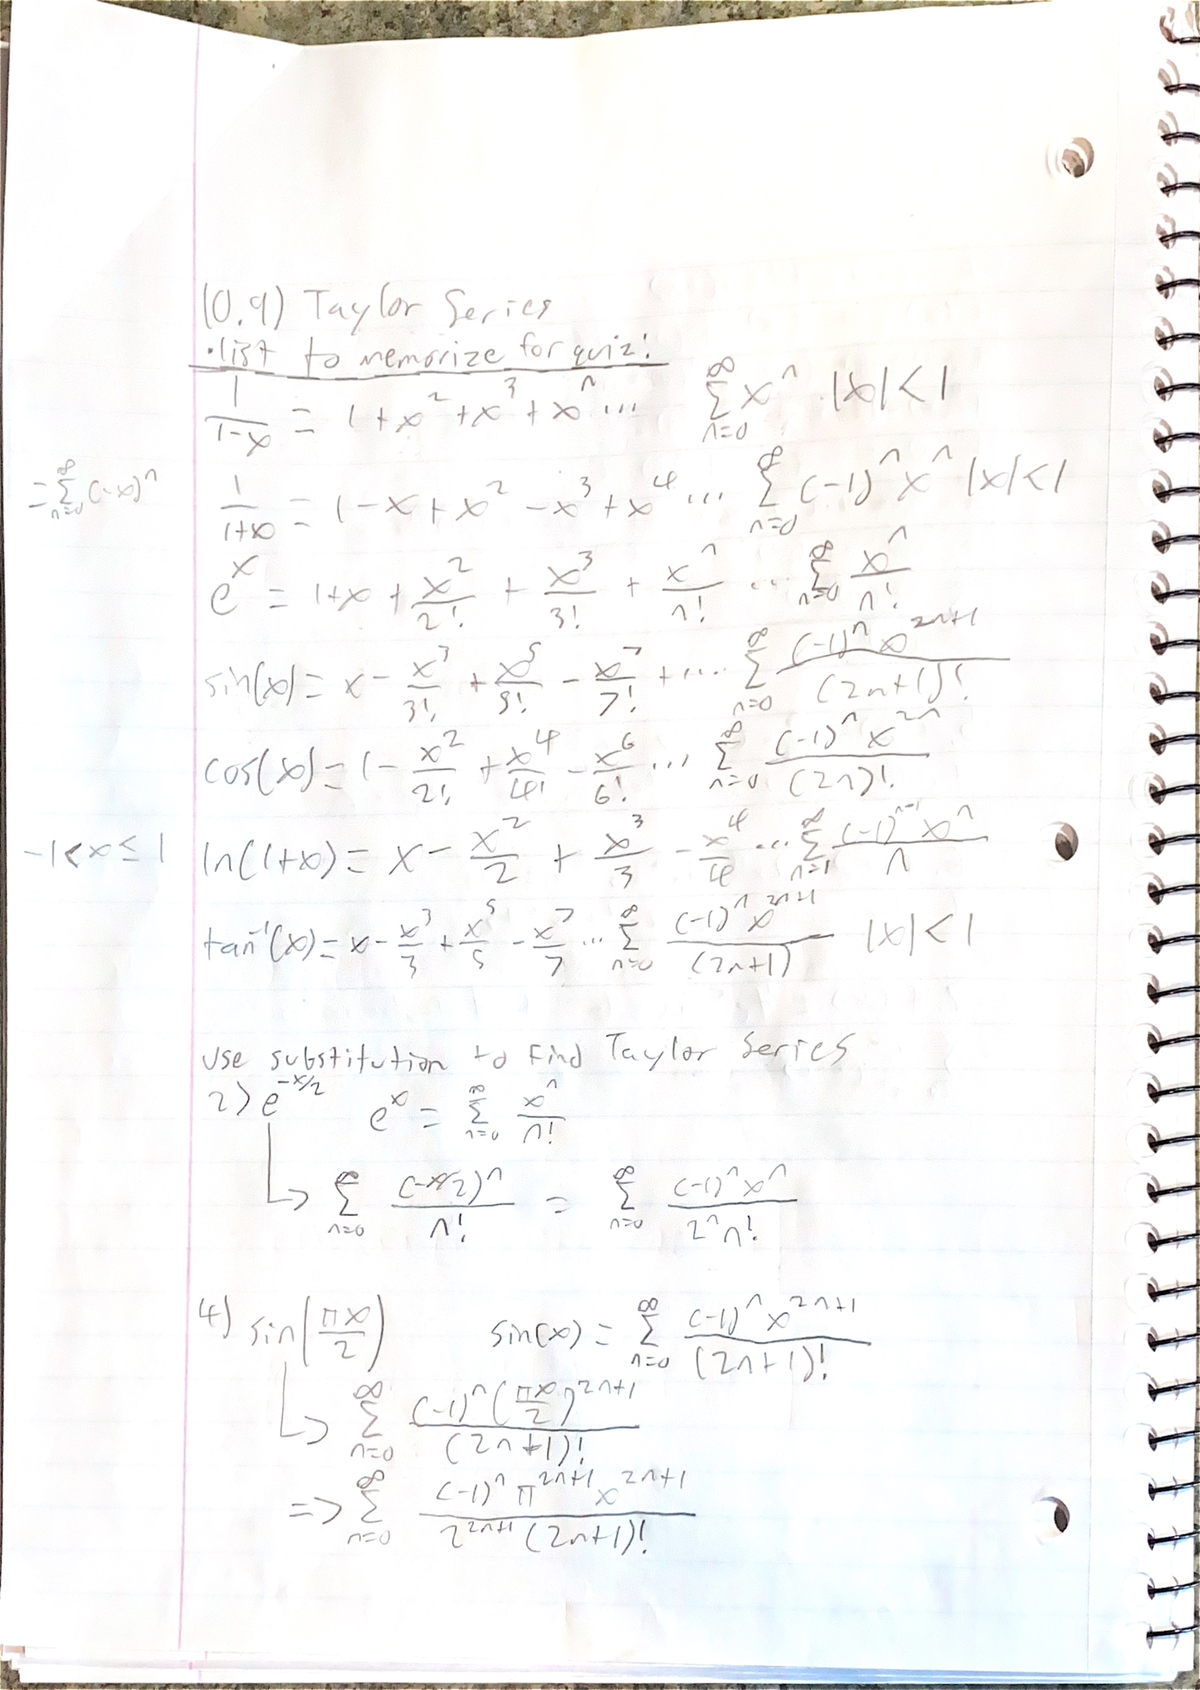 10.9) Taylor Series
• list to memorize for quiz!
1/(1-x) = 1+x^2+x^3+x^n... ∑_{n=0}^∞ x^n |x|<1
=∑_{n=0}^∞ (-x)^n 1/(1+x) = 1-x+x^2-x^3+x^4... ∑_{n=0}^∞ (-1)^n x^n |x|<1
e^x = 1+x+x^2/2!+x^3/3!+x^n/n! ... ∑_{n=0}^∞ x^n/n!
sin(x)= x-x^3/3!+x^5/5!-x^7/7!+.... ∑_{n=0}^∞ (-1)^n x^{2n+1}/(2n+1)!
cos(x)=1-x^2/2!+x^4/4!-x^6/6!... ∑_{n=0}^∞ (-1)^n x^{2n}/(2n)!
-1<x≤1 ln(1+x)= x-x^2/2+x^3/3-x^4/4... ∑_{n=1}^∞ (-1)^{n-1} x^n/n
tan^{-1}(x)= x-x^3/3+x^5/5-x^7/7... ∑_{n=0}^∞ (-1)^n x^{2n+1}/(2n+1) |x|<1
Use substitution to Find Taylor Series
2) e^{-x/2} e^x = ∑_{n=0}^∞ x^n/n!
↳ ∑_{n=0}^∞ (-x/2)^n/n! = ∑_{n=0}^∞ (-1)^n x^n/2^n n!
4) sin(πx/2) sin(x) = ∑_{n=0}^∞ (-1)^n x^{2n+1}/(2n+1)!
↳ ∑_{n=0}^∞ (-1)^n (πx/2)^{2n+1}/(2n+1)!
=> ∑_{n=0}^∞ (-1)^n π^{2n+1} x^{2n+1}/2^{2n+1} (2n+1)!